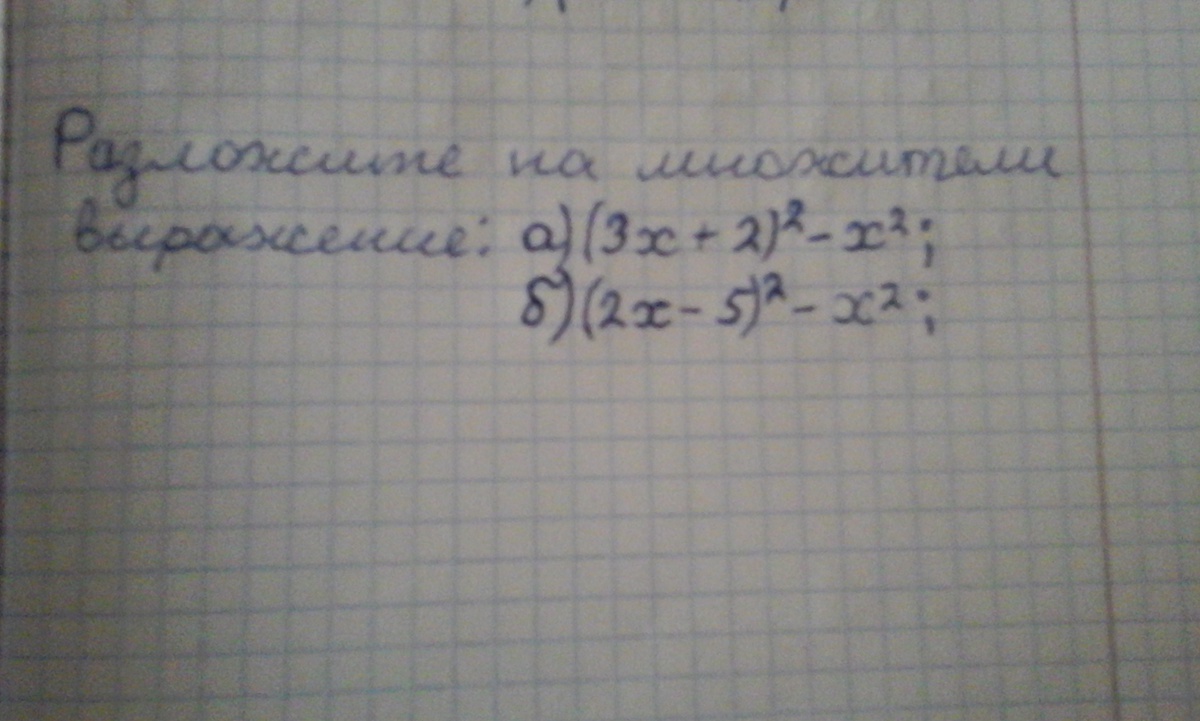 Разложите на множители
выражение: а) (3x + 2)² - x²;
б) (2x - 5)² - x²;